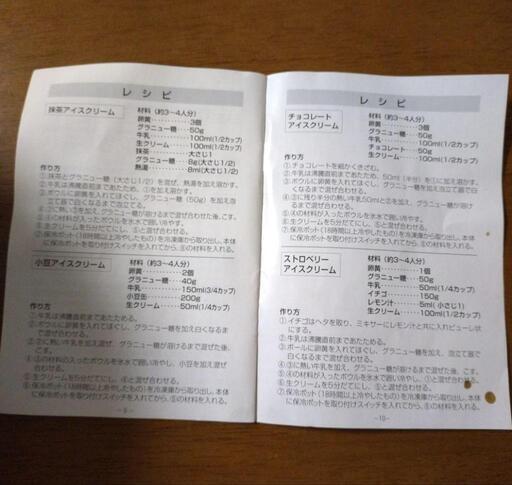 レシピ
抹茶アイスクリーム
材料（約3〜4人分）
卵黄・・・・・・・・・・3個
グラニュー糖・・・・50g
牛乳・・・・・・・・・・100ml(1/2カップ)
生クリーム・・・・・・100ml(1/2カップ)
抹茶・・・・・・・・・・大さじ1
グラニュー糖・・・・8g(大さじ1/2)
熱湯・・・・・・・・・・8ml(大さじ1/2)
作り方
①抹茶とグラニュー糖（大さじ1/2）を混ぜ、熱湯を加え溶かす。
②牛乳は沸騰直前まであたため、①を少しずつ加え溶かす。
③ボウルに卵黄を入れてほぐし、グラニュー糖（50g）を加え泡
立て器で白くなるまで混ぜ合わせる。
④③に熱い②を加え、グラニュー糖が溶けるまで混ぜ合わせた後、こす。
⑤④の材料が入ったボウルを氷水で囲い冷やす。
⑥生クリームを5分だてにし、⑤と混ぜ合わせる。
⑦保冷ポット(18時間以上冷やしたもの)を冷凍庫から取り出し、本体
に保冷ポットを取り付けスイッチを入れてから、⑥の材料を入れる。
小豆アイスクリーム
材料（約3〜4人分）
卵黄・・・・・・・・・・2個
グラニュー糖・・・・40g
牛乳・・・・・・・・・・150ml(3/4カップ)
小豆缶・・・・・・・・200g
生クリーム・・・・・・50ml(1/4カップ)
作り方
①牛乳は沸騰直前まであたためる。
②ボウルに卵黄を入れてほぐし、グラニュー糖を加え白くなる
まで混ぜ合わせる。
③②に熱い牛乳を加え、グラニュー糖が溶けるまで混ぜた後、
こす。
④③の材料が入ったボウルを氷水で囲い冷やし、小豆を加え混ぜ
合わせる。
⑤生クリームを5分だてにし、④と混ぜ合わせる。
⑥保冷ポット(18時間以上冷やしたもの)を冷凍庫から取り出し、本体
に保冷ポットを取り付けスイッチを入れてから、⑤の材料を入れる。
−9−
レシピ
チョコレート
アイスクリーム
材料（約3〜4人分）
卵黄・・・・・・・・・・3個
グラニュー糖・・・・50g
牛乳・・・・・・・・・・100ml(1/2カップ)
チョコレート・・・・50g
生クリーム・・・・・・100ml(1/2カップ)
作り方
①チョコレートを細かくきざむ。
②牛乳は沸騰直前まであたため、50ml（半分）を①に加え溶かす。
③ボウルに卵黄を入れてほぐし、グラニュー糖を加え泡立て器で白
くなるまで混ぜ合わせる。
④③に残り半分の熱い牛乳50mlと②を加え、グラニュー糖が溶
けるまで混ぜ合わせた後、こす。
⑤④の材料が入ったボウルを氷水で囲い冷やす。
⑥生クリームを5分だてにし、⑤と混ぜ合わせる。
⑦保冷ポット(18時間以上冷やしたもの)を冷凍庫から取り出し、本体
に保冷ポットを取り付けスイッチを入れてから、⑥の材料を入れる。
ストロベリー
アイスクリーム
材料（約3〜4人分）
卵黄・・・・・・・・・・1個
グラニュー糖・・・・50g
牛乳・・・・・・・・・・50ml(1/4カップ)
イチゴ・・・・・・・・150g
レモン汁・・・・・・・・5ml（小さじ1)
生クリーム・・・・・・100ml(1/2カップ)
作り方
①イチゴはヘタを取り、ミキサーにレモン汁と共に入れピューレ状
にする。
②牛乳は沸騰直前まであたためる。
③ボールに卵黄を入れてほぐし、グラニュー糖を加え、泡立て器で
白くなるまで混ぜ合わせる。
④③に熱い牛乳を加え、グラニュー糖が溶けるまで混ぜた後、こす。
⑤④の材料が入ったボウルを氷水で囲い冷やし、①と混ぜ合わせる。
⑥生クリームを5分だてにし、⑤と混ぜ合わせる。
⑦保冷ポット(18時間以上冷やしたもの)を冷凍庫から取り出し、本体
に保冷ポットを取り付けスイッチを入れてから、⑥の材料を入れる。
−10−